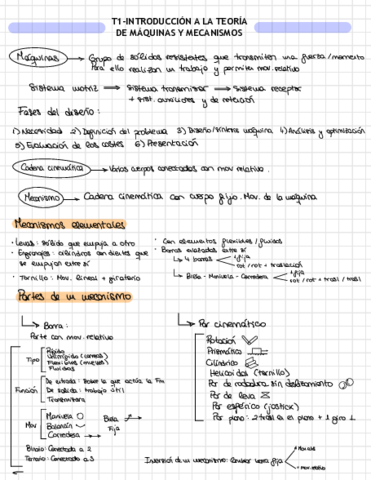 T1-INTRODUCCIÓN A LA TEORÍA
DE MÁQUINAS Y MECANISMOS
Máquinas → Grupo de sólidos resistentes que transmiten una fuerza/momento
Para ello realizan un trabajo y permite mov. relativo
Sistema motriz → Sistema transmisor → Sistema receptor
+ sist. auxiliares y de retención
Fases del diseño:
1) Necesidad 2) Definición del problema 3) Diseño/síntesis máquina 4) Análisis y optimización
5) Evaluación de los costes 6) Presentación
Cadena cinemática → Varios cuerpos conectados con mov relativo.
Mecanismo → Cadena cinemática con cuerpo fijo. Mov. de la máquina
Mecanismos elementales
· Levas: sólido que empuja a otro
· Engranajes: cilindros con dientes que
se empujan entre sí
· Tornillo: Mov. lineal + giratorio
· Con elementos flexibles/fluidos
· Barras enlazadas entre sí
↳ 4 barras
1 fija
rot/rot + traslación
↳ Biela-Manivela-Corredera
1 fija
rot/rot + trasl/trasl
Partes de un mecanismo
↳ Barra:
Parte con mov. relativo
Tipo
Rígida
Flexibles (muelles)
Fluidas
Función
De entrada: sobre la que actúa la Fm
De salida: trabajo útil
Transmisora
Mov
Manivela
Balancín
Corredera
Biela
Fija
Binario: Conectada a 2
Ternario: Conectado a 3
↳ Par cinemático
Rotación
Prismática
Cilíndrico
Helicoidal (tornillo)
Par de rodadura sin deslizamiento
Par de leva
Par esférico (joystick)
Par plano: 2 trasl en el plano + 1 giro ⊥
Inversión de un mecanismo: cambiar barra fija